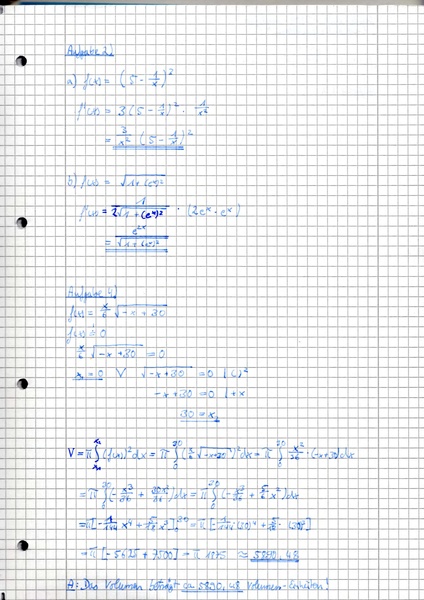 Aufgabe 2)
a) f(x) = (5 - 1/x)²
f'(x) = 3(5 - 1/x)² · 1/x²
= 3/x² (5 - 1/x)²
b) f(x) = √(1+(eˣ)²)
f'(x) = 1/(2√(1+(eˣ)²)) · (2eˣ · eˣ)
= e²ˣ/√(1+(eˣ)²)
Aufgabe 4)
f(x) = x/6 √(-x+30)
f(x) = 0
x/6 √(-x+30) = 0
x₁ = 0 ∨ √(-x+30) = 0 |( )²
-x+30 = 0 |+x
30 = x₂
V = π∫(f(x))² dx = π∫₀³⁰ (x/6 √(-x+30))² dx = π∫₀³⁰ x²/36 · (-x+30) dx
= π∫₀³⁰ (-x³/36 + 30x²/36) dx = π∫₀³⁰ (-x³/36 + 5/6 x²) dx
= π[-1/144 x⁴ + 5/18 x³]₀³⁰ = π[-1/144 (30)⁴ + 5/18 · (30)³]
= π[-5625 + 7500] = π 1875 ≈ 5890,48
A: Das Volumen beträgt ca 5890,48 Volumen-Einheiten!